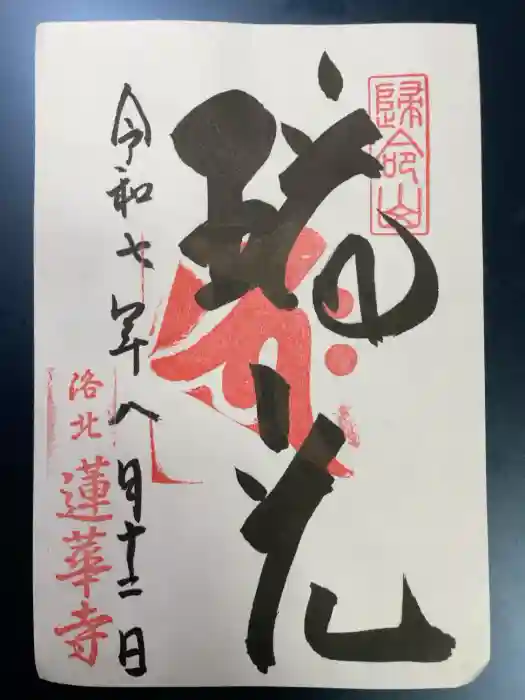 歸命山
瑞光
令和七年八月十二日
洛北 蓮華寺